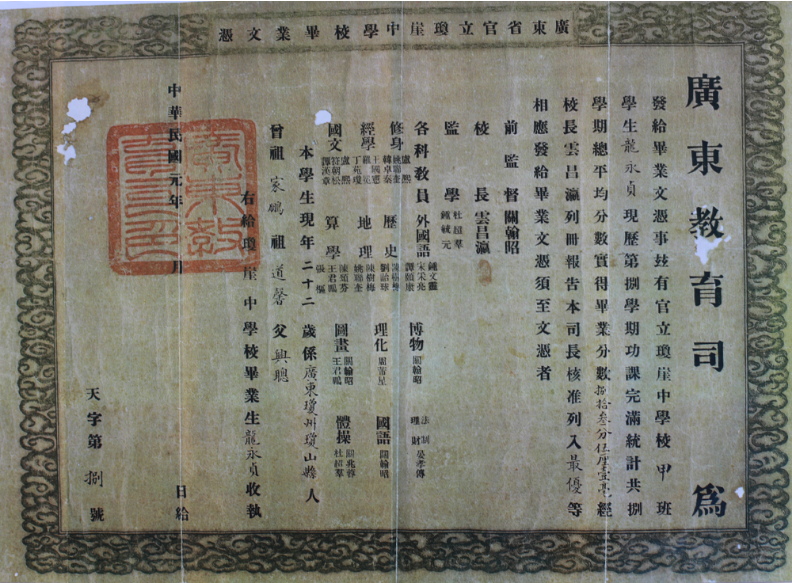 廣東省官立瓊崖中學校畢業文憑
廣東教育司 為
發給畢業文憑事茲有官立瓊崖中學校甲班
學生龍永貞現歷第捌學期功課完滿統計共捌
學期總平均分數實得畢業分數捌拾叁分伍厘壹毫經
校長雲昌瀛列冊報告本司長核准列入最優等
相應發給畢業文憑須至文憑者
前監督關翰昭
校長雲昌瀛
監學 杜超羣 鍾毓元
各科教員 外國語 鍾文 宋采亮 譚頤康 博物 關翰昭 法制 理財 晏孝傳
修身 盧熙 姚勵奎 韓卓 歷史 劉詒球 理化 星 國語 關翰昭
經學 王國憲 丁苑瓊 地理 陳樹梅 姚勵奎
國文 盧熙 符朝松 譚 章 算學 陳 芬 王君鵬 張 圖畫 關翰昭 王君鵬 體操 關兆蓉 杜超羣
本學生現年二十二歲係廣東瓊州瓊山縣人
曾祖家鵬祖道馨父興聰
右給瓊崖中學校畢業生龍永貞收執
廣東教育司印
中華民國元年 月 日給
天字第捌號